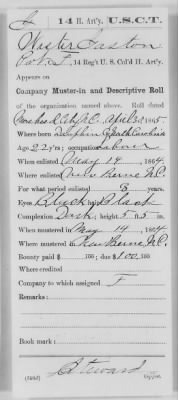 14 H. Art'y. U.S.C.T.
Co. F, 14 Reg't U. S. Col'd H. Art'y.
Appears on
Company Muster-in and Descriptive Roll
of the organization named above. Roll dated
Morehead City N.C. April 30, 1865
Where born Duplin Co. North Carolina
Age 22 y'rs; occupation Labour
When enlisted May 19, 1864
Where enlisted New Berne N.C.
For what period enlisted 3 years.
Eyes Black; hair Black
Complexion Dark; height 5 ft. 5 in.
When mustered in May 19, 1864
Where mustered in New Berne, N.C.
Bounty paid $ 100; due $ 100 100
Where credited
Company to which assigned F
Remarks:
Book mark:
Steward
Copyist.